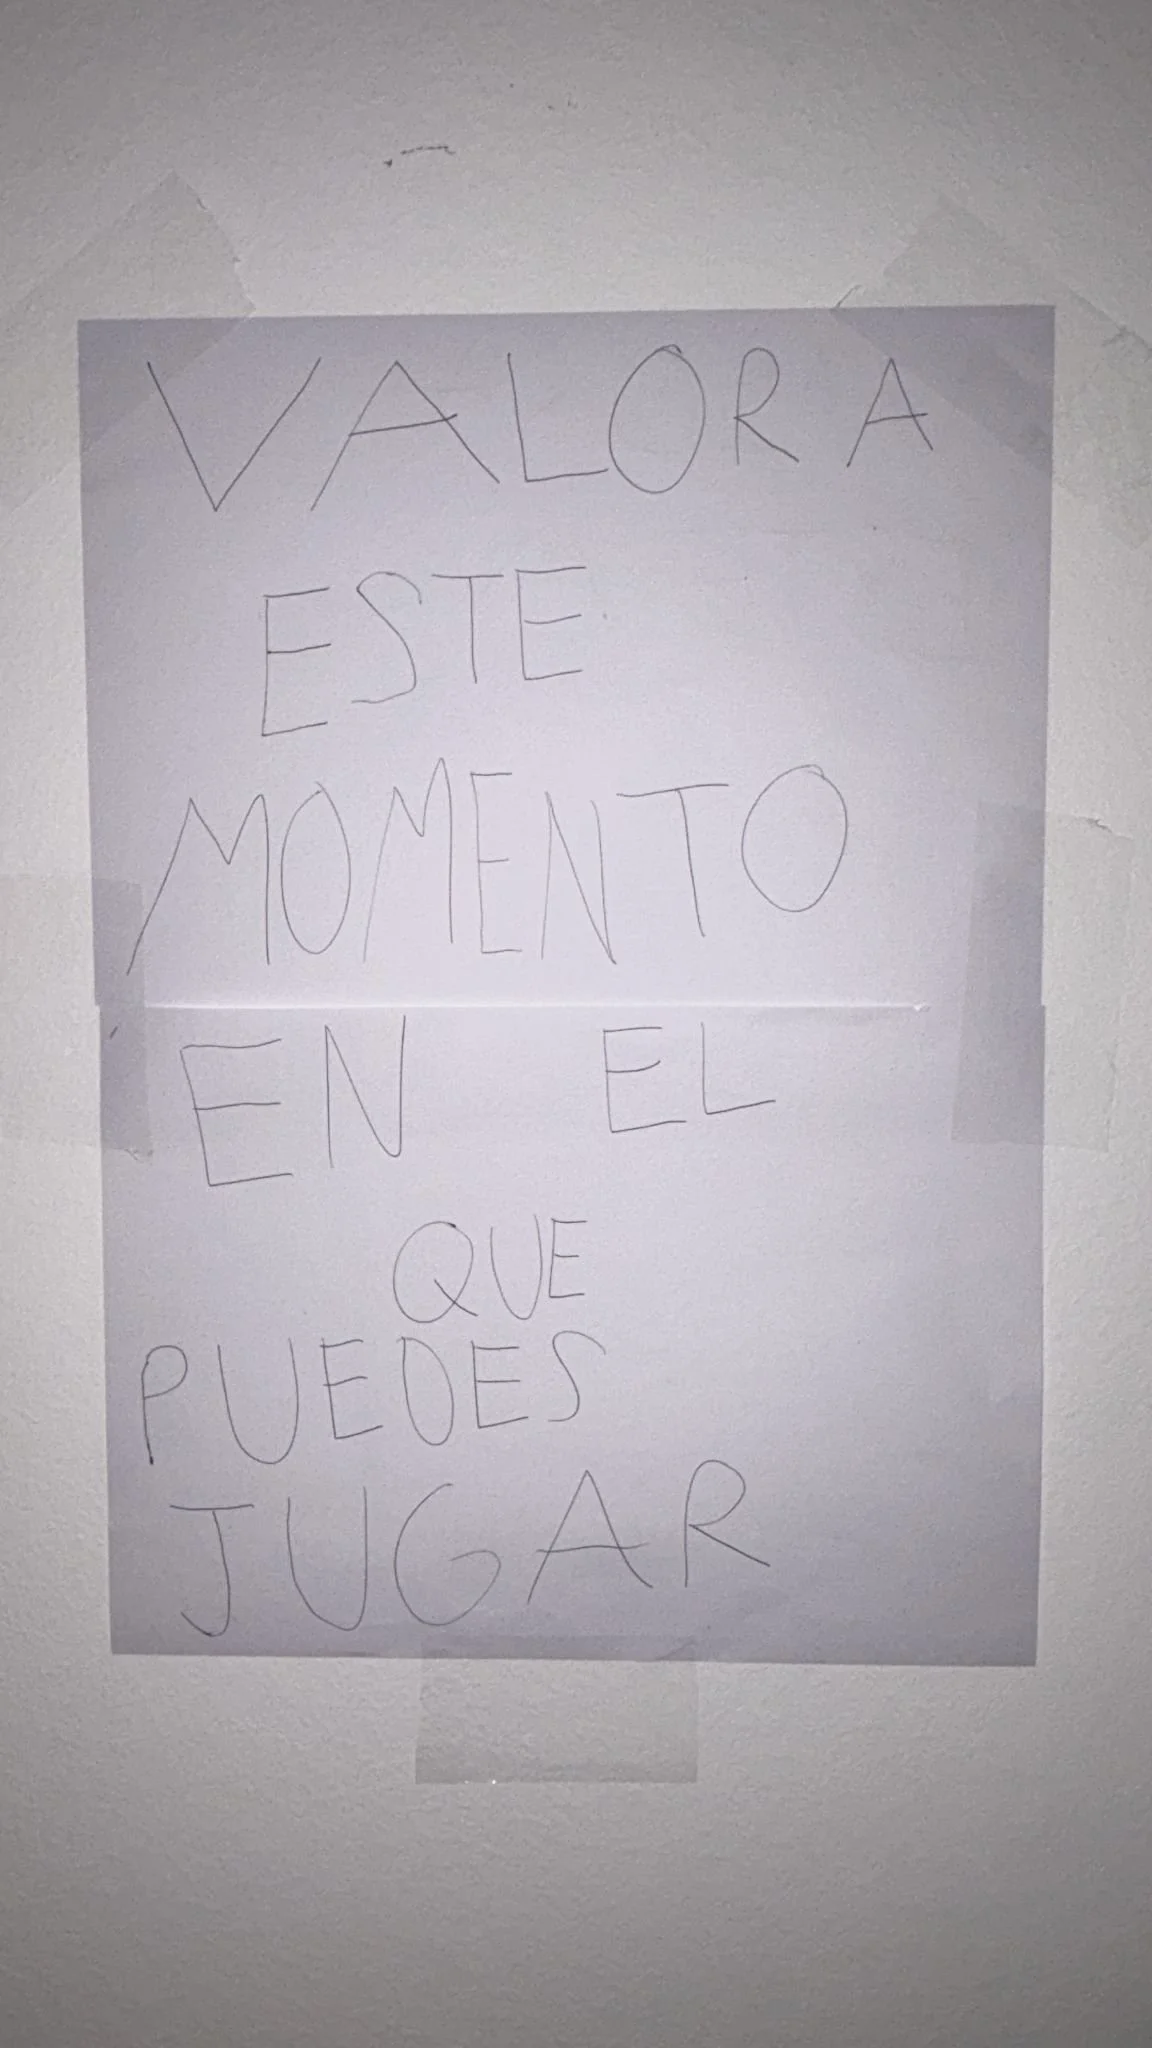 VALORA
ESTE
MOMENTO
EN EL
QUE
PUEDES
JUGAR